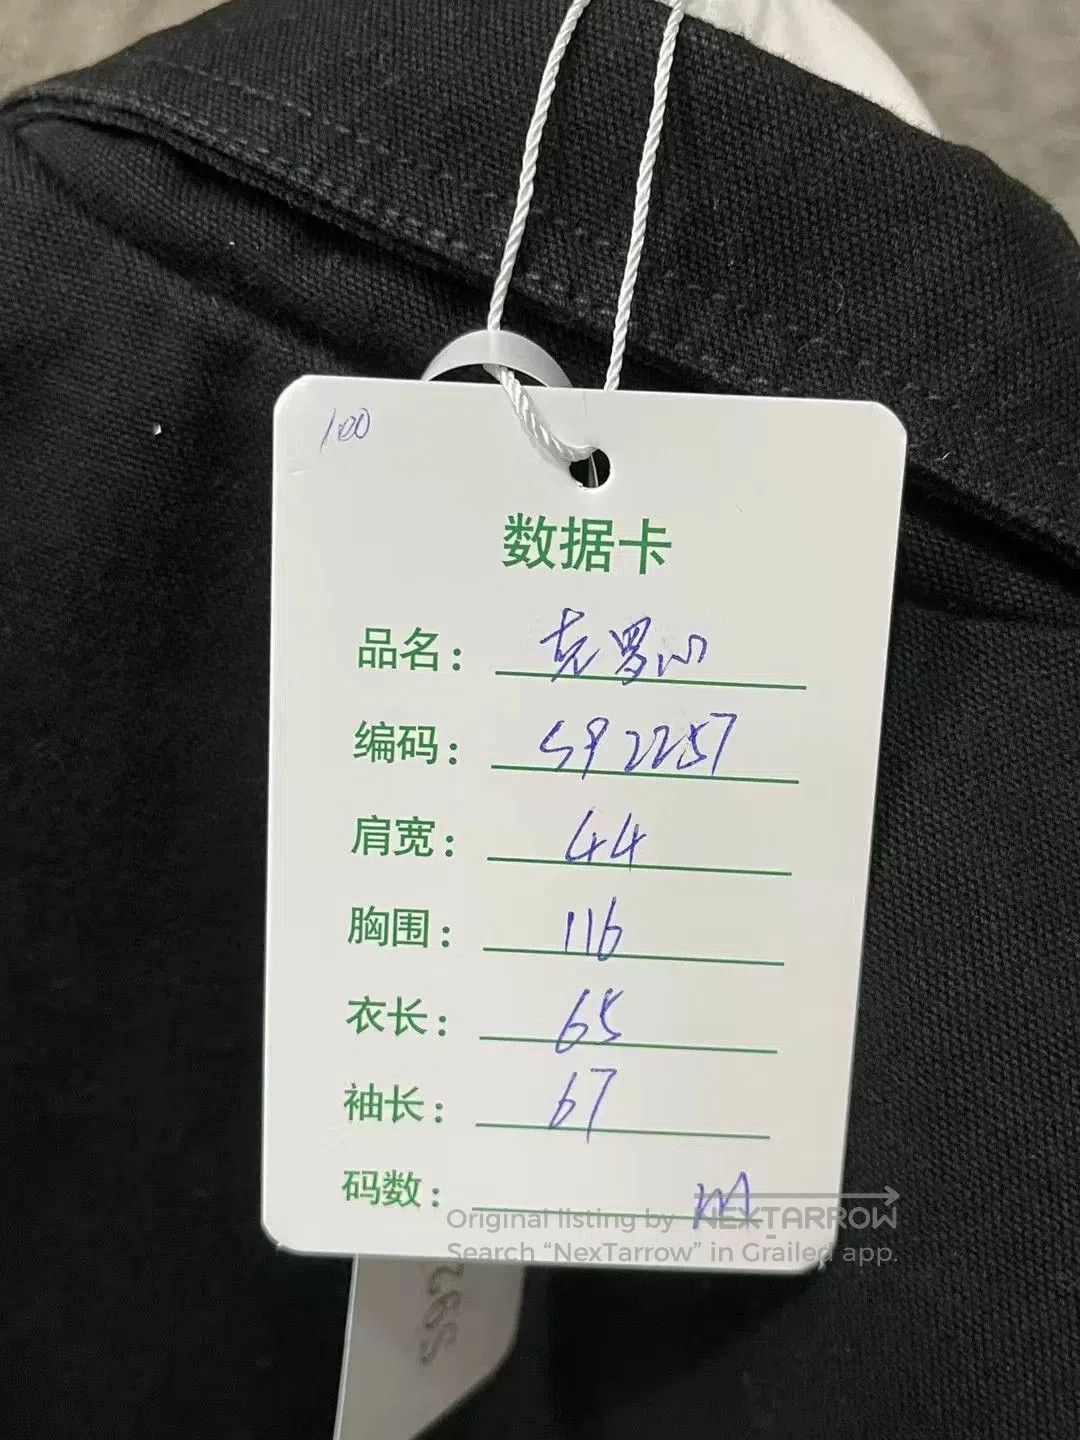 100
数据卡
品名: 克罗心
编码: S92257
肩宽: 44
胸围: 116
衣长: 65
袖长: 67
码数: M
Original listing by NEXTARROW
Search “NexTarrow” in Grailed app.